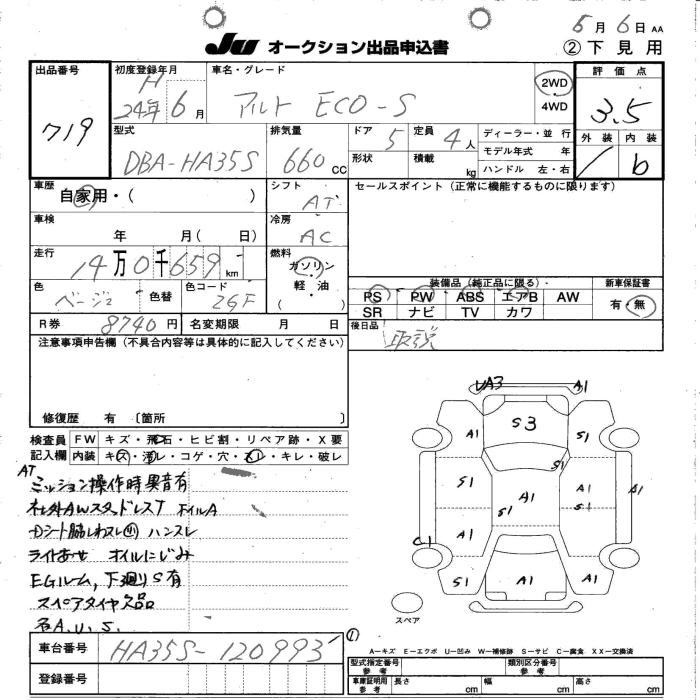 5月6日 AA
Ju オークション出品申込書
②下見用
出品番号 719
初度登録年月 H 24年6月
車名・グレード アルト ECO-S
2WD
4WD
評価点 3.5
外装 内装 b
型式 DBA-HA35S
排気量 660cc
ドア 5
定員 4人
形状
積載 kg
ディーラー・並行
モデル年式 年
ハンドル 左・右
車歴 自家用・( )
シフト AT
セールスポイント(正常に機能するものに限ります)
車検 年 月( 日)
冷房 AC
走行 14万0千659km
燃料 ガソリン
軽・油
( )
色 ベージ2
色替
色コード ZGF
装備品(純正品に限る)
PS PW ABS エアB AW
SR ナビ TV カワ
新車保証書 有・無
R券 8740円
名変期限 月 日
後日品 取説
注意事項申告欄(不具合内容等は具体的に記入してください)
修復歴 有 〔箇所 〕
検査員記入欄
FW キズ・飛石・ヒビ割・リペア跡・X要
内装 キズ・汚レ・コゲ・穴・スレ・キレ・破レ
AT
ミッション操作時異音有
社外AWスタッドレスT ホイルA
Dシート脇しわスレ ハンスレ
ライトあせ オイルにじみ
EGルーム,下廻りS有
スペアタイヤ欠品
各A.U.S.
UA3 A1
S3
A1 A1
S1
S1 A1
A1 S1 S1 A1
A1
C1
S1 A1 A1
スペア
①
A-キズ E-エクボ U-凹み W-補修跡 S-サビ C-腐食 XX-交換済
車台番号 HA35S-120993
登録番号
型式指定番号 参考
類別区分番号 参考
車庫証明用 参考 長さ cm 幅 cm 高さ cm